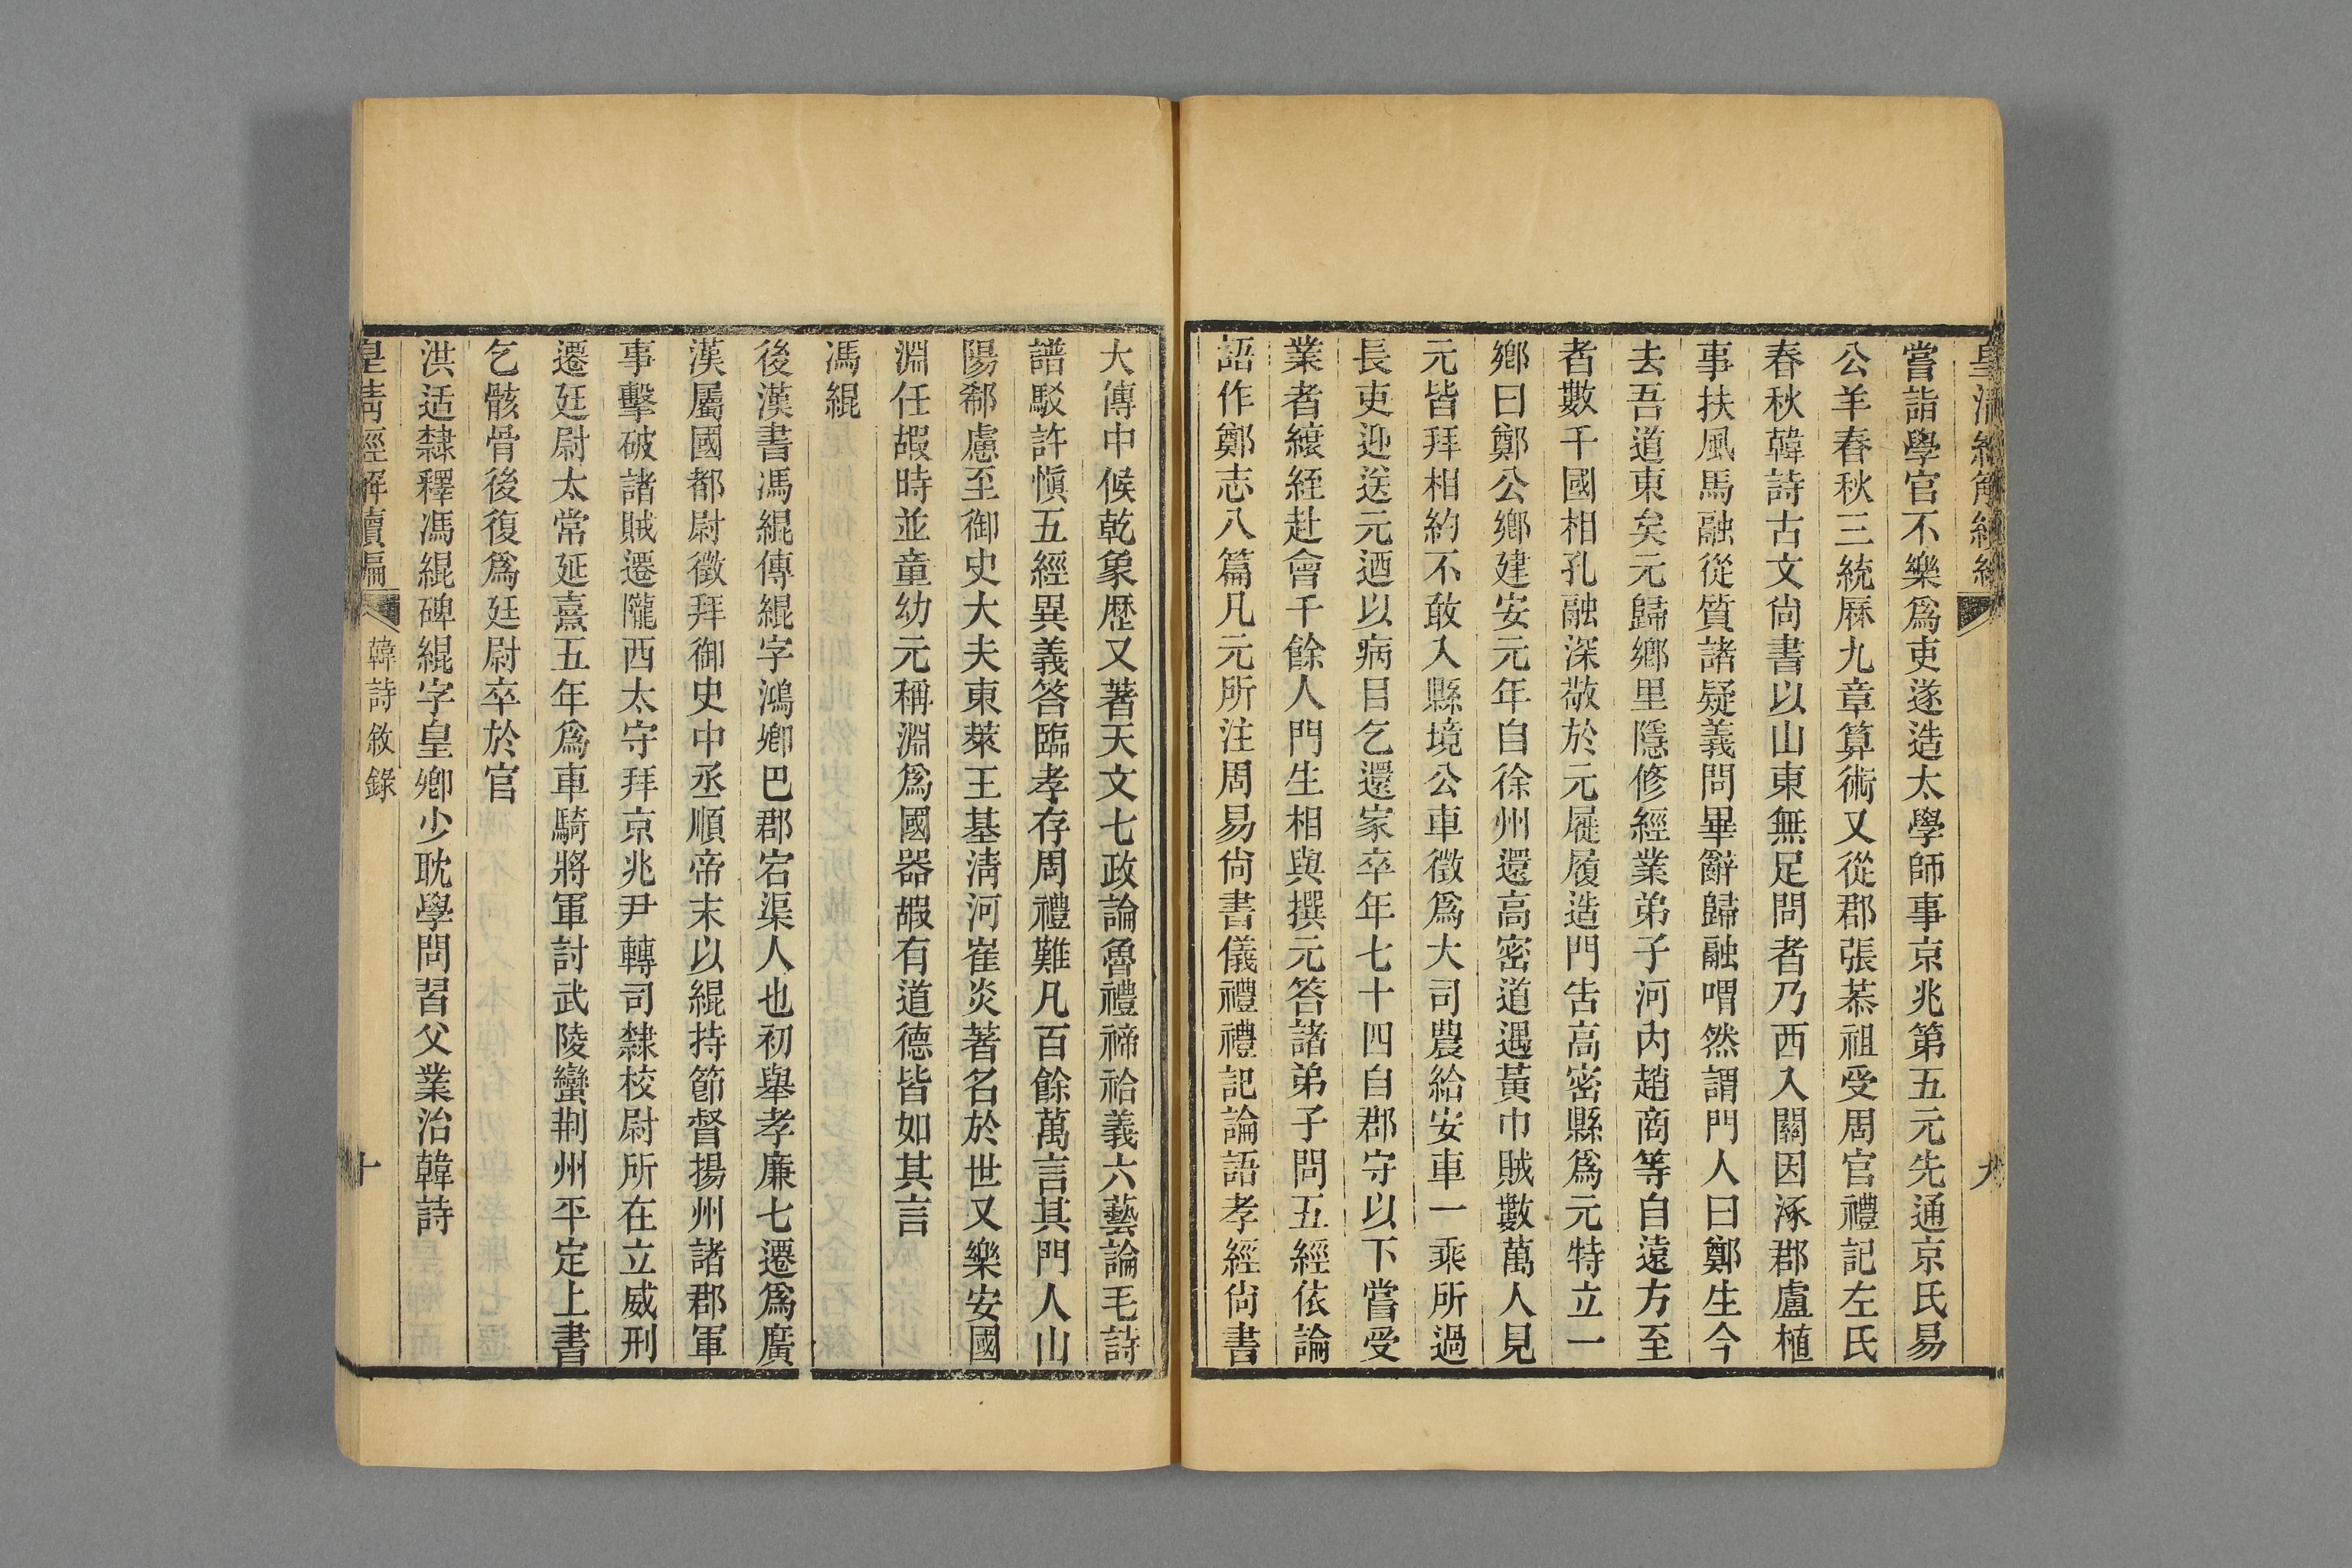 皇清經解續編
九
嘗詣學官不樂爲吏遂造太學師事京兆第五元先通京氏易
公羊春秋三統厤九章算術又從郡張恭祖受周官禮記左氏
春秋韓詩古文尙書以山東無足問者乃西入關因涿郡盧植
事扶風馬融從質諸疑義問畢辭歸融喟然謂門人曰鄭生今
去吾道東矣元歸鄉里隱修經業弟子河內趙商等自遠方至
者數千國相孔融深敬於元屣履造門告高密縣爲元特立一
鄉曰鄭公鄉建安元年自徐州還高密道遇黃巾賊數萬人見
元皆拜相約不敢入縣境公車徵爲大司農給安車一乘所過
長吏迎送元迺以病自乞還家卒年七十四自郡守以下嘗受
業者縗絰赴會千餘人門生相與撰元答諸弟子問五經依論
語作鄭志八篇凡元所注周易尙書儀禮禮記論語孝經尙書
大傳中候乾象歷又著天文七政論魯禮禘祫義六藝論毛詩
譜駁許愼五經異義答臨孝存周禮難凡百餘萬言其門人山
陽郗慮至御史大夫東萊王基淸河崔炎著名於世又樂安國
淵任嘏時並童幼元稱淵爲國器嘏有道德皆如其言
馮緄
後漢書馮緄傳緄字鴻卿巴郡宕渠人也初舉孝廉七遷爲廣
漢屬國都尉徵拜御史中丞順帝末以緄持節督揚州諸郡軍
事擊破諸賊遷隴西太守拜京兆尹轉司隸校尉所在立威刑
遷廷尉太常延熹五年爲車騎將軍討武陵蠻荆州平定上書
乞骸骨後復爲廷尉卒於官
洪适隸釋馮緄碑緄字皇卿少耽學問習父業治韓詩
皇清經解續編
韓詩敘錄
十